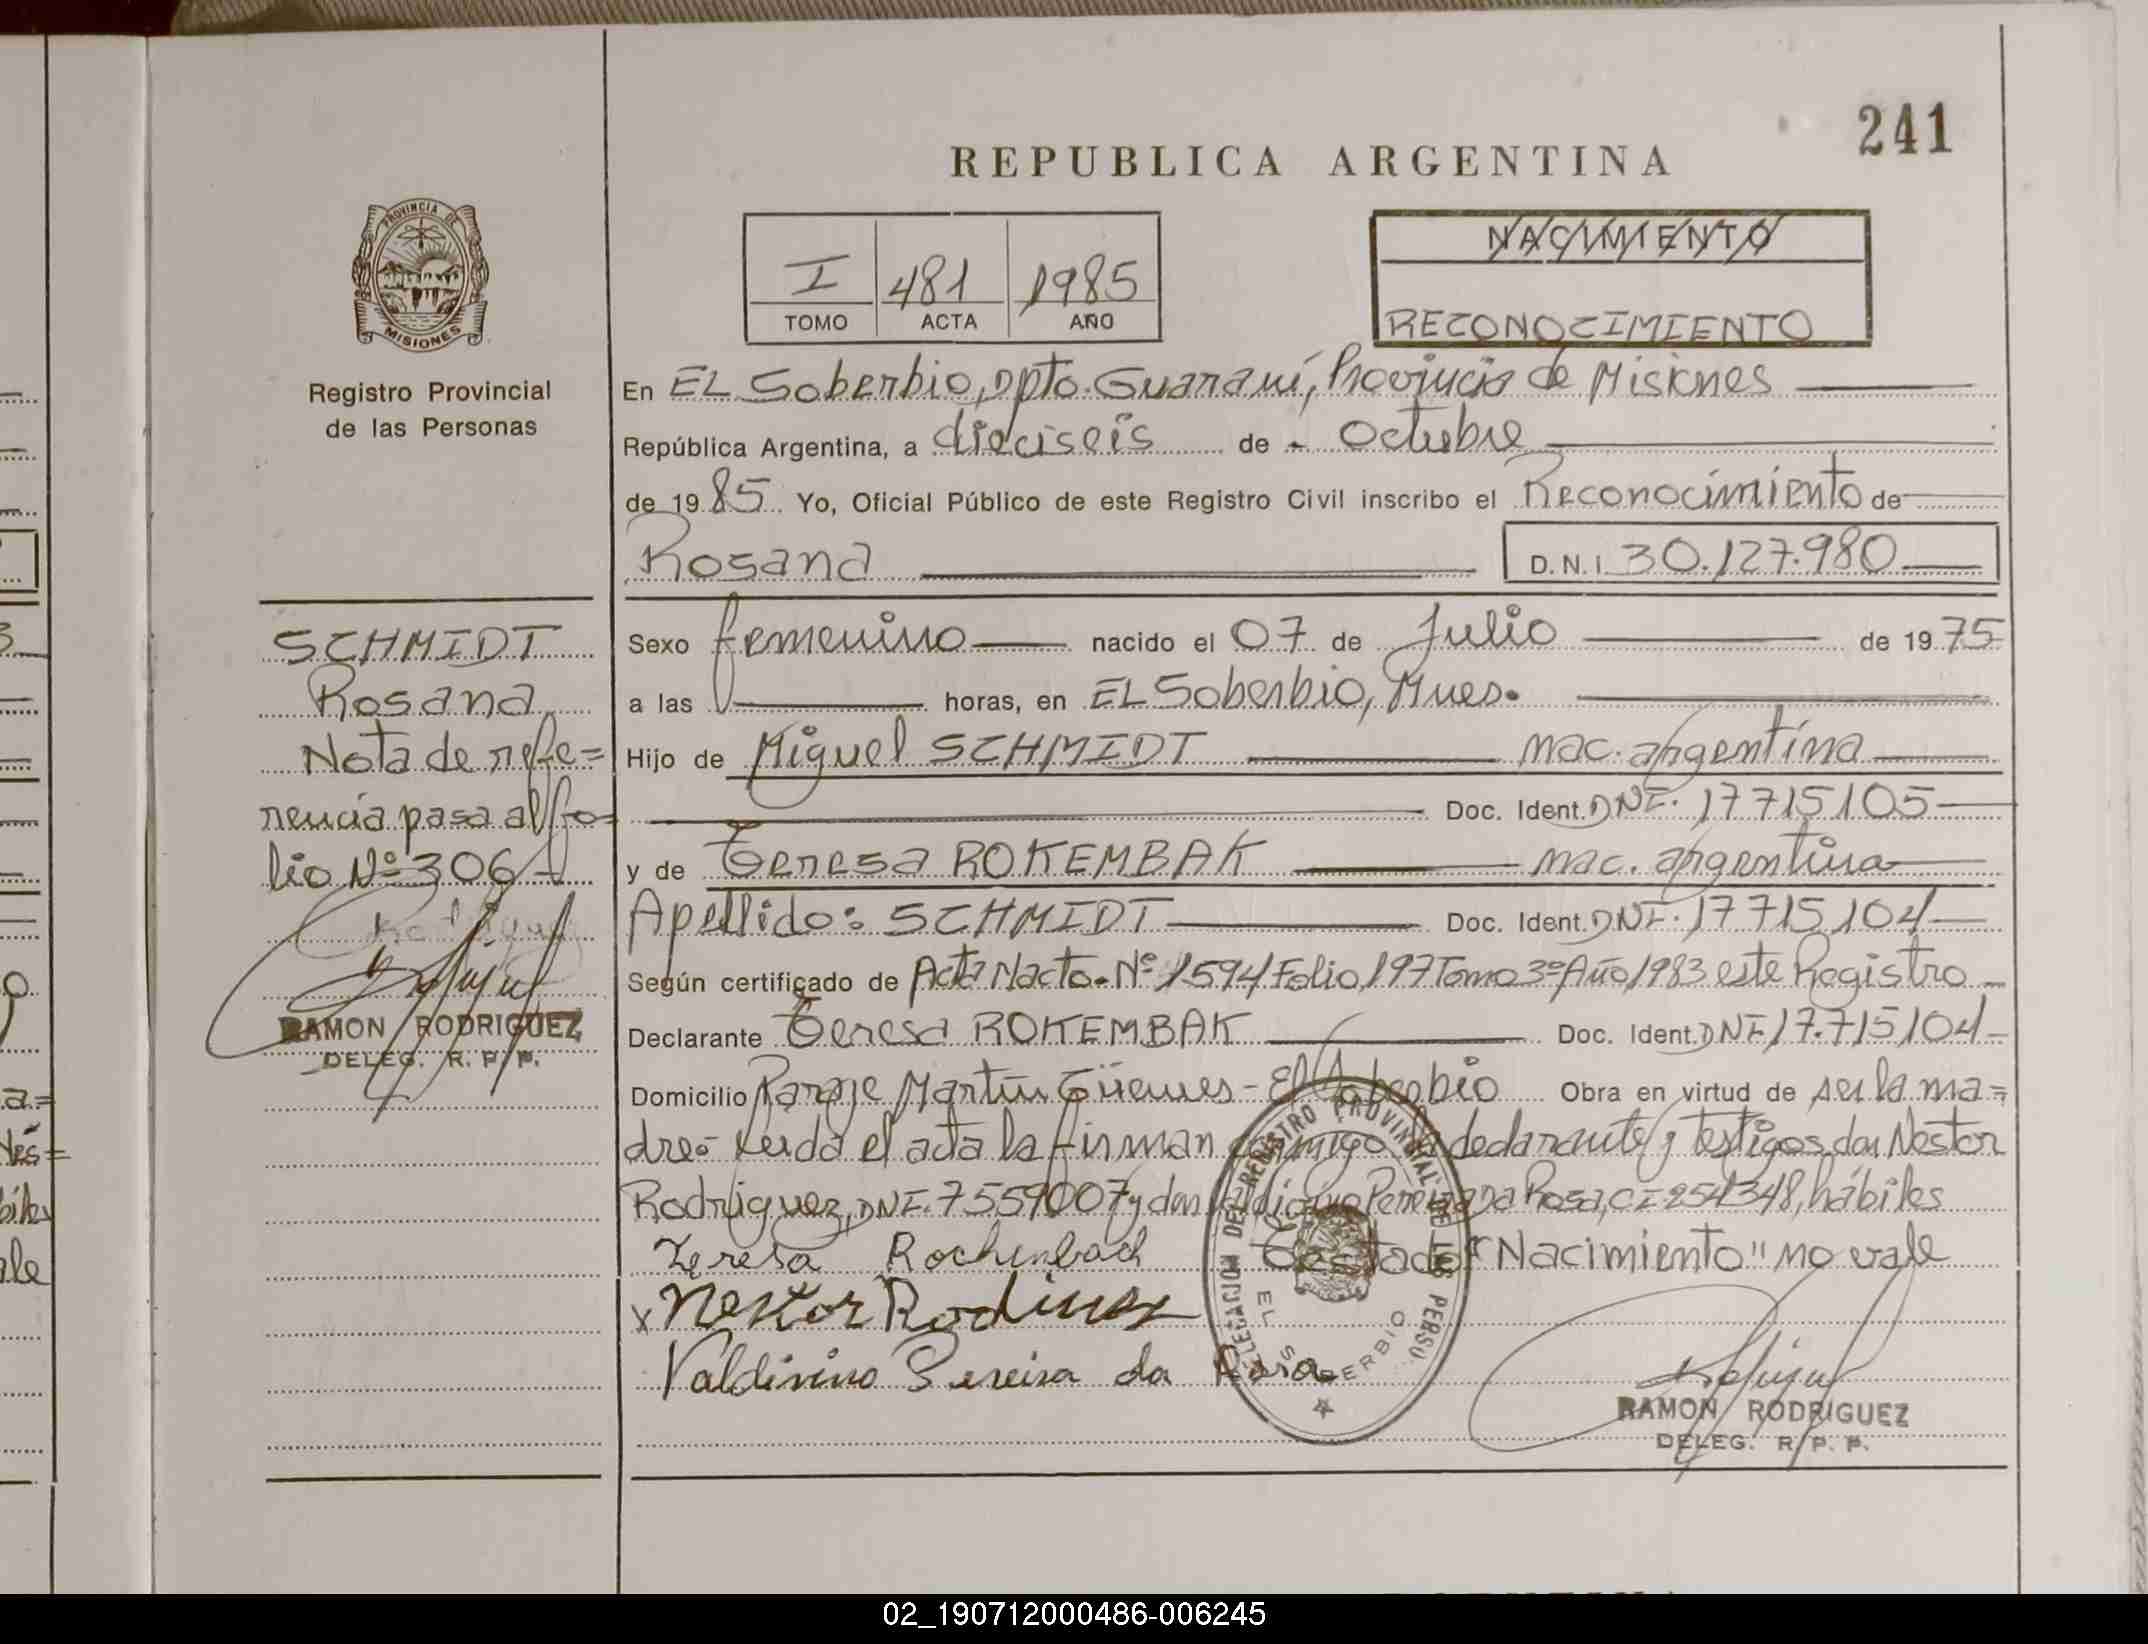 241
REPUBLICA ARGENTINA
I 481 1985
TOMO ACTA AÑO
NACIMIENTO
RECONOCIMIENTO
PROVINCIA DE
MISIONES
Registro Provincial
de las Personas
SCHMIDT
Rosana
Nota de refe=
rencia pasa al fo=
lio Nº 306
RAMON RODRIGUEZ
DELEG. R. P. P.
En EL Soberbio, Dpto. Guaraní, Provincia de Misiones
República Argentina, a dieciseis de - Octubre
de 1985 Yo, Oficial Público de este Registro Civil inscribo el Reconocimiento de
Rosana D.N.I. 30.127.980
Sexo femenino nacido el 07 de Julio de 1975
a las horas, en EL Soberbio, Mnes.
Hijo de Miguel SCHMIDT nac. argentina
Doc. Ident. DNI. 17715105
y de Teresa ROKEMBAK nac. argentina
Apellido: SCHMIDT Doc. Ident. DNI. 17715104
Según certificado de Acta Nacto. Nº 1594 Folio 197 Tomo 3º Año 1983 este Registro
Declarante Teresa ROKEMBAK Doc. Ident. DNI 17.715104
Domicilio Paraje Martín Güemes - El Soberbio Obra en virtud de ser la ma=
dre.- Leida el acta la firman conmigo la declarante y testigos don Nestor
Rodriguez, DNI. 7559007 y don Valdivino Pereira da Rosa, CI 254348, hábiles
Teresa Rochenbach Testado "Nacimiento" no vale
x Nestor Rodriguez
Valdivino Pereira da Rosa
DELEGACION DEL REGISTRO PROVINCIAL DE LAS PERSO
EL SOBERBIO
RAMON RODRIGUEZ
DELEG. R. P. P.
02_190712000486-006245